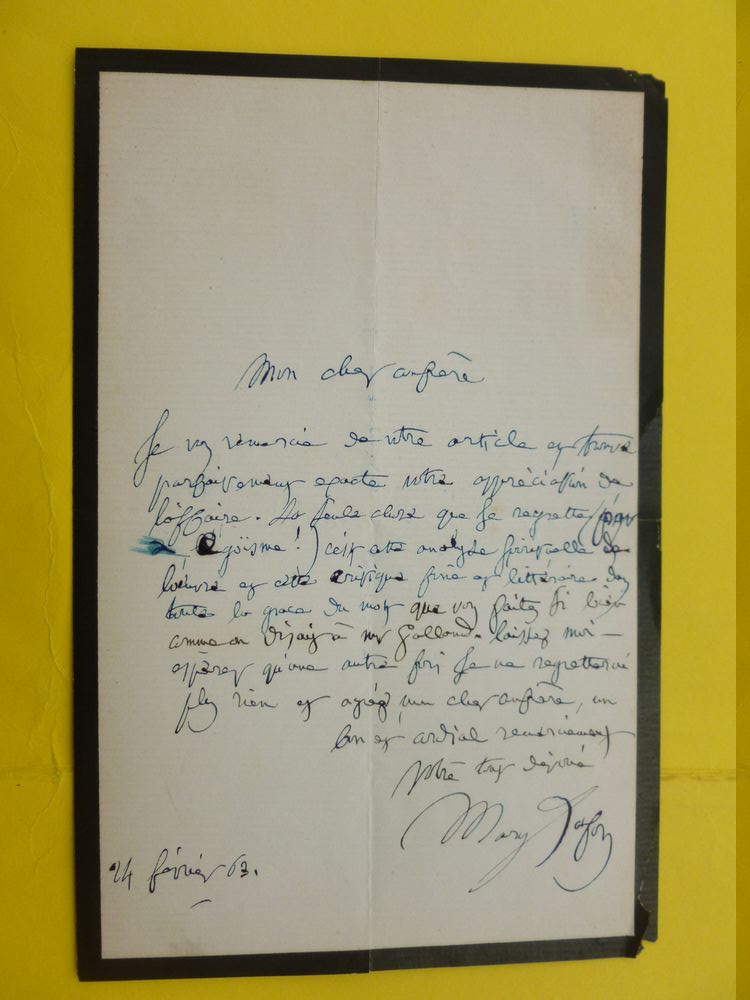 Mon cher confrère
Je vous remercie de votre article et trouve
parfaitement exacte votre appréciation de
l'affaire. La seule chose que je regrette (pour
l'Egoïsme!) c'est cette analyse spirituelle de
l'œuvre et cette critique fine et littéraire dans
toute la grace du mot que vous faites si bien
comme on disait à Mr Galland. laissez moi
espérer qu'une autre fois je ne regretterai
plus rien et agréez mon cher confrère, un
bon et cordial remerciement
Votre tout dévoué
Mary Lafon
24 février 63.